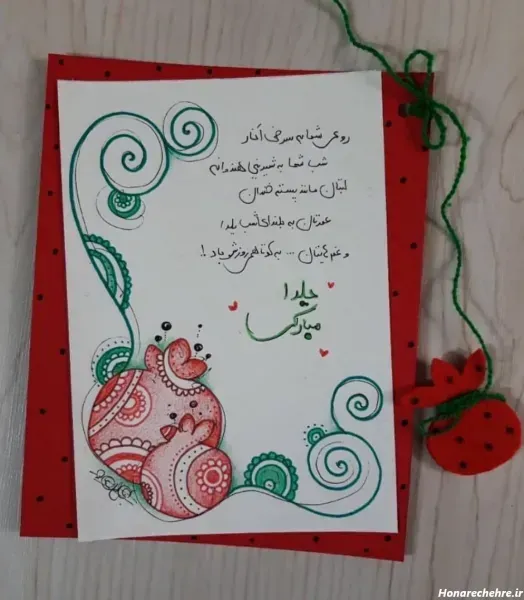 روی شما به سرخی انار
شب شما به شیرینی هندوانه
لبتان مانند پسته خندان
عمرتان به بلندای شب یلدا
و غم هایتان ... به کوتاهی روزش باد !
یلدا
مبارک
Honarechehre.ir